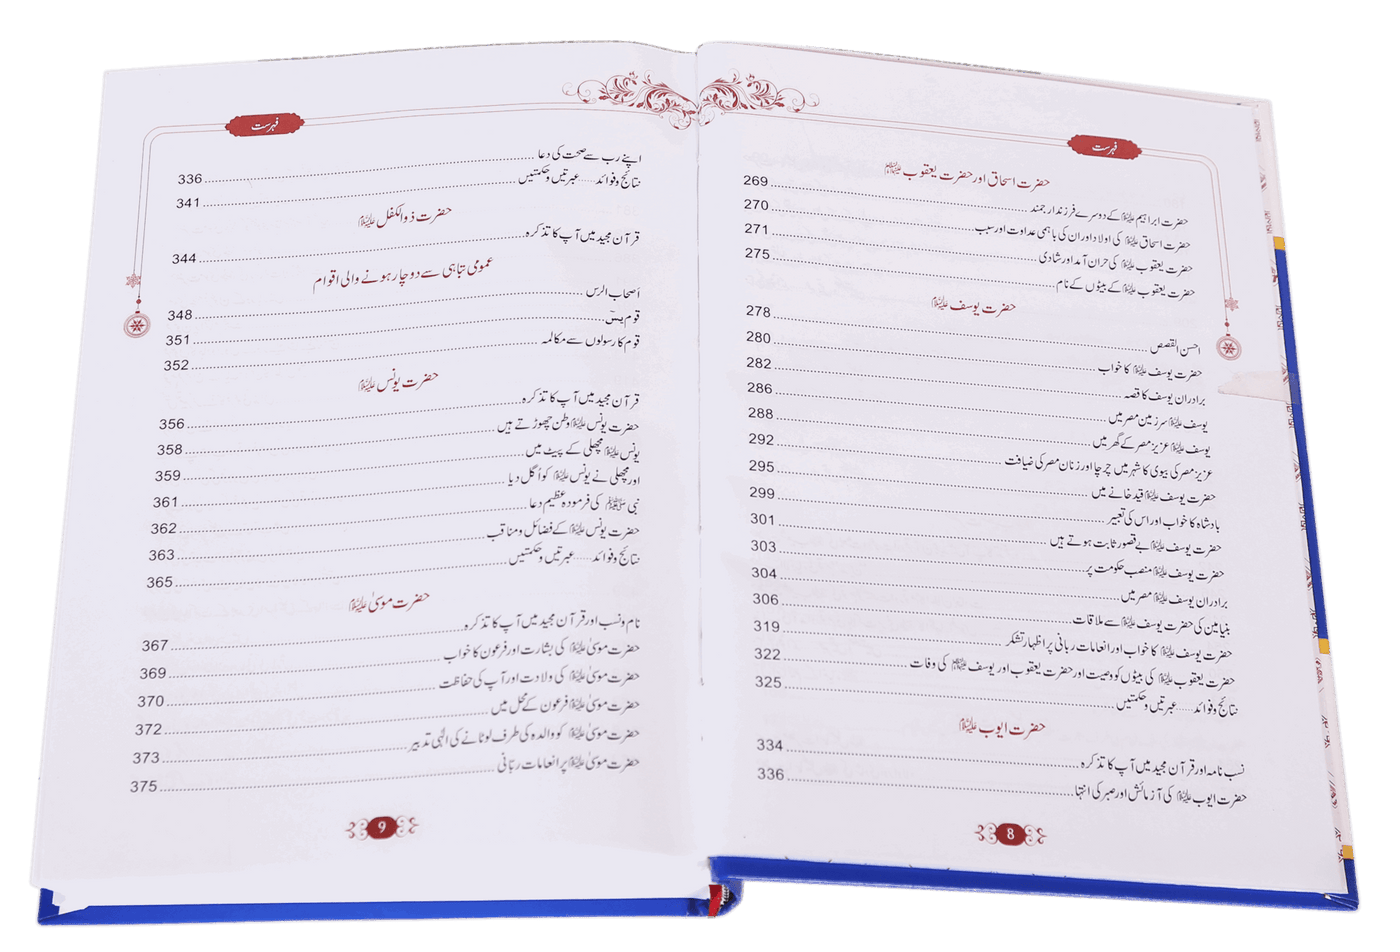 فہرست
حضرت اسحاق اور حضرت یعقوب علیہما السلام
حضرت ابراہیم علیہ السلام کے دوسرے فرزند ارجمند 269
حضرت اسحاق علیہ السلام کی اولاد اور ان کی باہمی عداوت اور سبب 270
حضرت یعقوب علیہ السلام کی حران آمد اور شادی 271
حضرت یعقوب علیہ السلام کے بیٹوں کے نام 275
حضرت یوسف علیہ السلام
احسن القصص 278
حضرت یوسف علیہ السلام کا خواب 280
برادران یوسف کا قصہ 282
یوسف علیہ السلام سرزمین مصر میں 286
یوسف علیہ السلام عزیز مصر کے گھر میں 288
عزیز مصر کی بیوی کا شہر میں چرچا اور زنان مصر کی ضیافت 292
حضرت یوسف علیہ السلام قید خانے میں 295
بادشاہ کا خواب اور اس کی تعبیر 299
حضرت یوسف علیہ السلام بے قصور ثابت ہوتے ہیں 301
حضرت یوسف علیہ السلام منصب حکومت پر 303
برادران یوسف علیہ السلام مصر میں 304
بنیامین کی حضرت یوسف علیہ السلام سے ملاقات 306
حضرت یوسف علیہ السلام کا خواب اور انعامات ربانی پر اظہار تشکر 319
حضرت یعقوب علیہ السلام کی بیٹوں کو وصیت اور حضرت یعقوب اور یوسف علیہما السلام کی وفات 322
نتائج و فوائد ...... عبرتیں و حکمتیں 325
حضرت ایوب علیہ السلام
نسب نامہ اور قرآن مجید میں آپ کا تذکرہ 334
حضرت ایوب علیہ السلام کی آزمائش اور صبر کی انتہا 336
8
فہرست
اپنے رب سے صحت کی دعا 336
نتائج و فوائد ...... عبرتیں و حکمتیں 341
حضرت ذوالکفل علیہ السلام
قرآن مجید میں آپ کا تذکرہ 344
عمومی تباہی سے دوچار ہونے والی اقوام
اصحاب الرس 348
قوم یسٓ 351
قوم کا رسولوں سے مکالمہ 352
حضرت یونس علیہ السلام
قرآن مجید میں آپ کا تذکرہ 356
حضرت یونس علیہ السلام وطن چھوڑتے ہیں 358
یونس علیہ السلام مچھلی کے پیٹ میں 359
اور مچھلی نے یونس علیہ السلام کو اگل دیا 361
نبی ﷺ کی فرمودہ عظیم دعا 362
حضرت یونس علیہ السلام کے فضائل و مناقب 363
نتائج و فوائد ...... عبرتیں و حکمتیں 365
حضرت موسیٰ علیہ السلام
نام و نسب اور قرآن مجید میں آپ کا تذکرہ 367
حضرت موسیٰ علیہ السلام کی بشارت اور فرعون کا خواب 369
حضرت موسیٰ علیہ السلام کی ولادت اور آپ کی حفاظت 370
حضرت موسیٰ علیہ السلام فرعون کے محل میں 372
حضرت موسیٰ علیہ السلام کو والدہ کی طرف لوٹانے کی الٰہی تدبیر 373
حضرت موسیٰ علیہ السلام پر انعامات ربانی 375
9